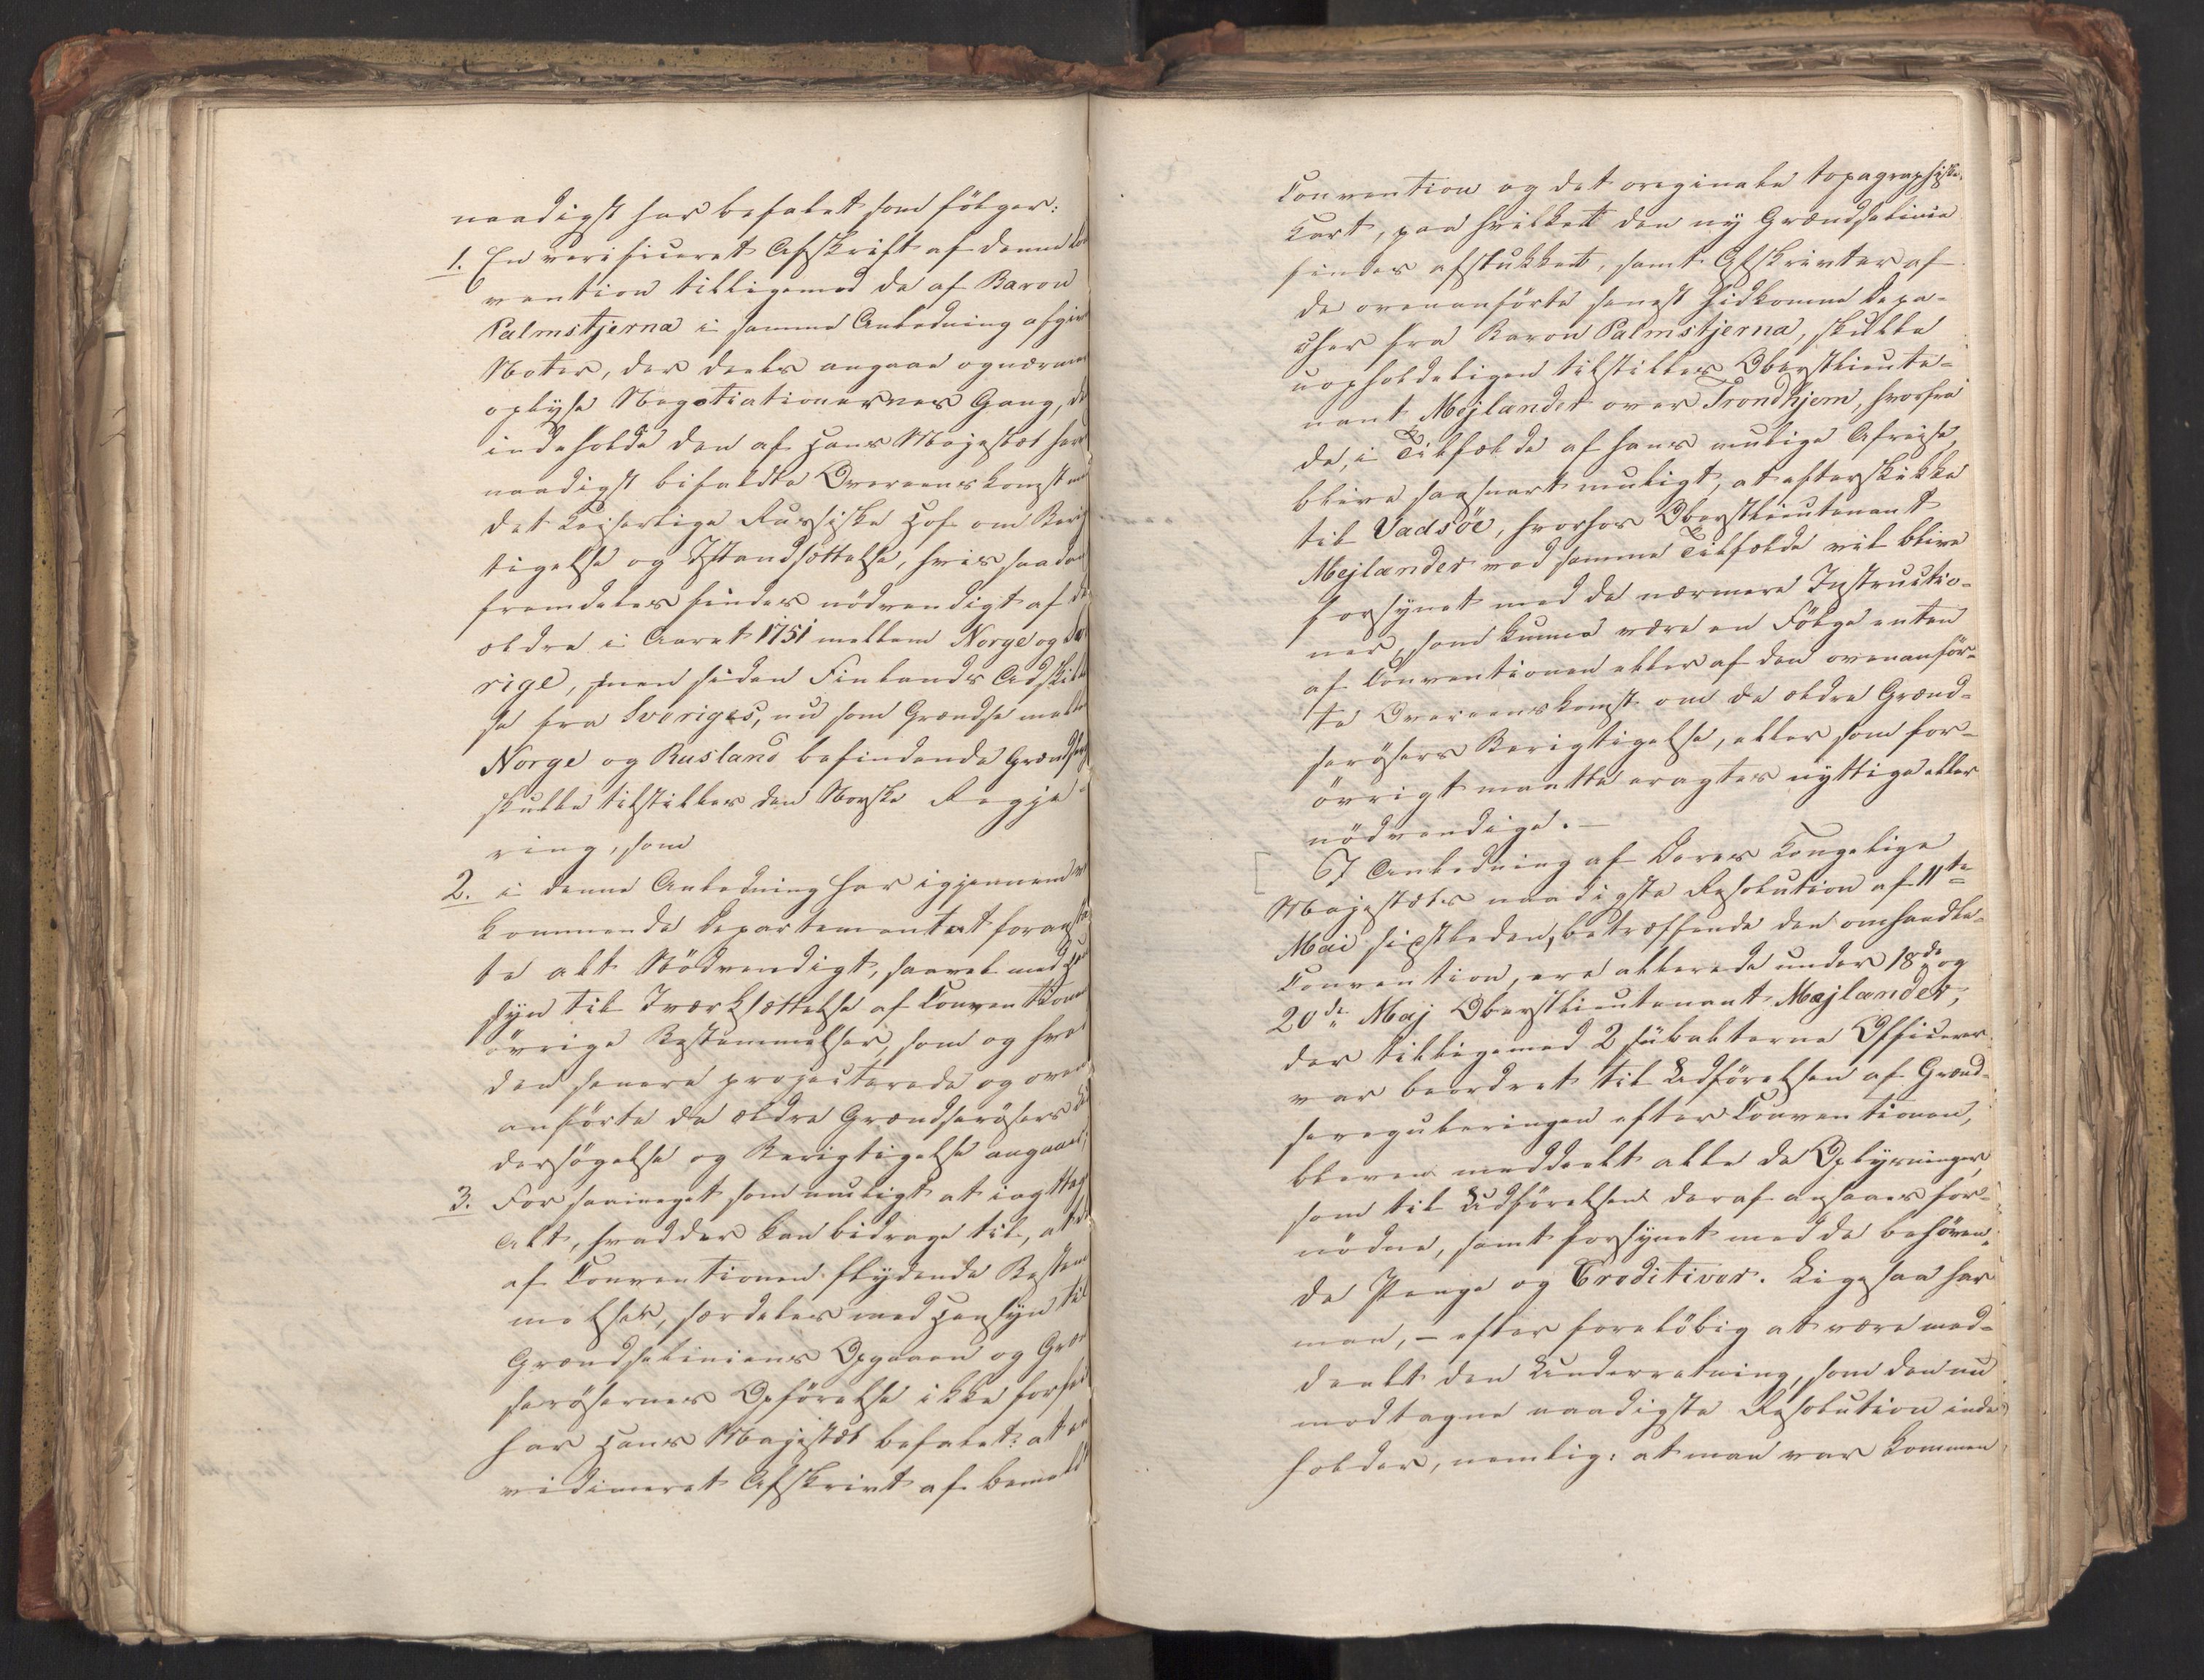 naadigst har befalet som fölger:
1. En verificeret Afskrift af denne Con
vention tilligemed de af Baron
Palmstjerna i samme Anledning afgivne
Noter, der deels angaae og nærmere
oplyse Negotiationernes Gang, de
indeholde den af Hans Majestæt har
naadigst bifaldte Overeenskomst med
det Kejserlige Russiske Hof om Berig
tigelse og Istandsættelse, hvis saadan
fremdeles findes nödvendigt af de
ældre i Aaret 1751 mellem Norge og Sve
rige, men siden Finlands Adskillel
se fra Sveriges, nu som Grændse mellem
Norge og Rusland befindende Grændserös
skulle tilstilles den Norske Regje
ring, som
2. i denne Anledning har igjennem ved
kommende Departementet foranstal
te alt Nödvendigt, saavel med Hen
syn til Iværksættelse af Conventionens
övrige Bestemmelser, som og hvad
den senere projecterede og oven
anförte de ældre Grændserösers Un
dersögelse og Berigtigelse angaaer;
3. For saavidt som muligt at iagttage
Alt, hvad der kan bidrage til, at de
af Conventionen flydende Bestem
melser, særdeles med Hensyn til
Grændseliniens Opgaaen og Græn
serösernes Opförelse ikke forsin
har Hans Majestæt befalet: at en
vidimeret Afskrivt af bemeldte
Convention og det originale topographiske
Kart, paa hvilket den ny Grændselinie
findes afstukket, samt Afskrivter af
de ovenanförte senest hidkomne Depe-
cher fra Baron Palmstjerna, skulle
uopholdeligen tilstilles Oberstlieute-
nant Mejlænder over Trondhjem, hvorfra
de, i Tilfælde af hans mulige Afreise,
blive saasnart muligt, at efterskikke
til Vadsöe, hvorhos Oberstlieutenant
Mejlænder ved samme Tilfælde vil blive
forsynet med de nærmere Instructio-
ner, som kunne være en Fölge enten
af Conventionen eller af den ovenanför-
te Overeenskomst om de ældre Grænd-
serösers Berigtigelse, eller som for-
övrigt maatte eragtes nyttige eller
nödvendige. —
I Anledning af Deres Kongelige
Majestæts naadigste Resolution af 11te
Mai sidstleden, betræffende den omhandle-
Convention, ere allerede under 18de og
20de Maj Oberstlieutenant Mejlænder,
der tilligemed 2 subalterne Officerer
var beordret til Udförelsen af Grænd-
sereguleringen efter Conventionen,
bleven meddeelt alle de Oplysninger,
som til Udförelsen deraf ansaaes for-
nödne, samt forsynet med de behöven-
de Penge og Creditiver. Ligesaa har
man, – efter foreløbig at være med-
deelt den Underretning, som den nu
modtagne naadigste Resolution inde-
holder, nemlig: at man var kommen